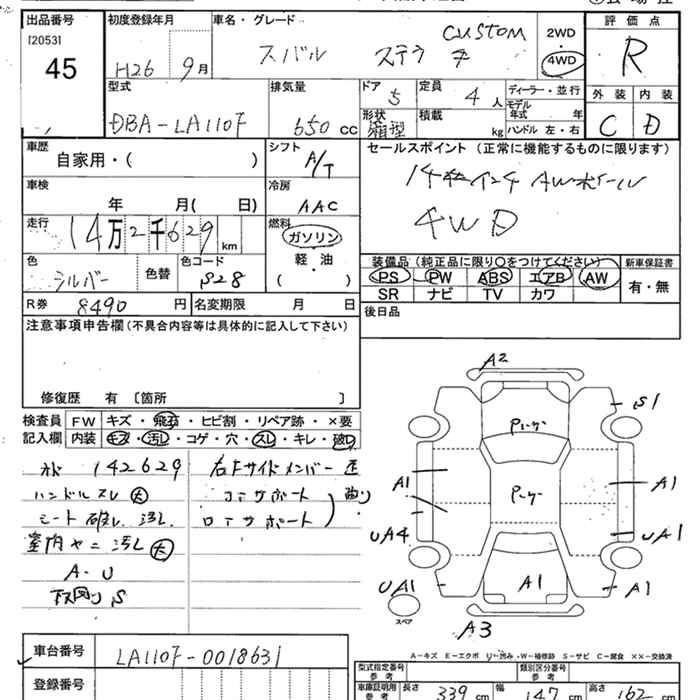 出品番号 初度登録年月 車名・グレード 評価点
[2053] 45 H26 9月 スバル ステラ CUSTOM 2WD・4WD R
型式 排気量 ドア 5 定員 4人 ディーラー・並行 外装 内装
DBA-LA110F 650cc 形状 箱型 積載 kg モデル年式 年 ハンドル 左・右 C D
車歴 自家用・( ) シフト A/T セールスポイント (正常に機能するものに限ります)
車検 年 月( 日) 冷房 AAC 14インチ AWホイール
走行 14万2千629km 燃料 ガソリン 軽・油 ( ) 4WD
色 シルバー 色替 色コード S28 装備品 (純正品に限り○をつけてください) 新車保証書
PS PW ABS エアB AW 有・無
R券 8490円 名変期限 月 日 SR ナビ TV カワ
注意事項申告欄 (不具合内容等は具体的に記入して下さい) 後日品
修復歴 有 〔箇所 〕
検査員 FW キズ・飛石・ヒビ割・リペア跡・×要
記入欄 内装 キズ・汚し・コゲ・穴・スレ・キレ・破れ
オド 142629 右Fサイドメンバー 歪
ハンドルスレ 大 コアサポート 曲り
シート 破レ 汚レ ロアサポート
室内ヤニ汚レ 大
A・U
下回り S
A2
S1
パーツ
パーツ
A1 A1
UA4 UA1
UA1 A1 A1
スペア
A3
A-キズ E-エクボ U-凹み W-補修跡 S-サビ C-腐食 XX-交換済
車台番号 LA110F-0018631 型式指定番号 参考 類別区分番号 参考
登録番号 車庫証明用 参考 長さ 339cm 幅 147cm 高さ 162cm